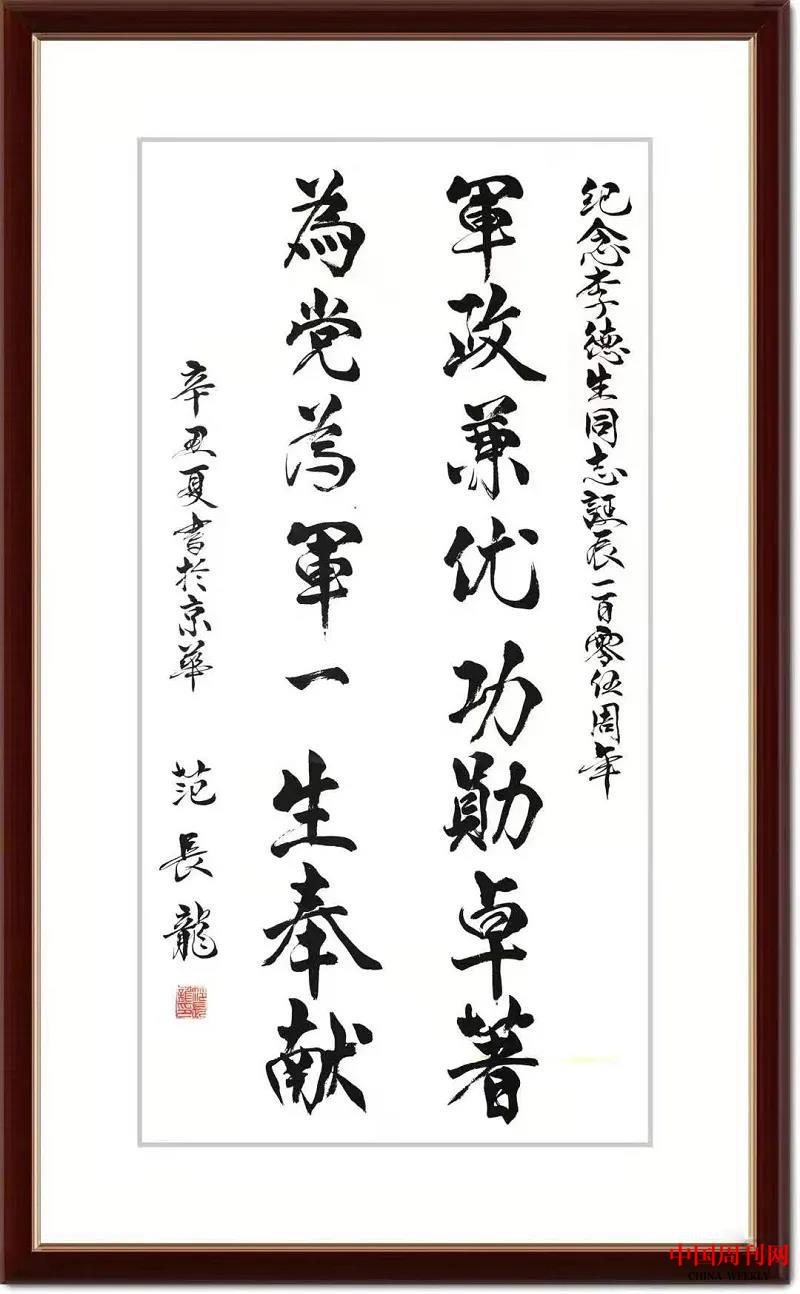 纪念李德生同志誕辰一百零伍周年
軍政兼优功勋卓著
為党為軍一生奉献
辛丑夏書於京華
范長龍
中国周刊网
CHINA WEEKLY